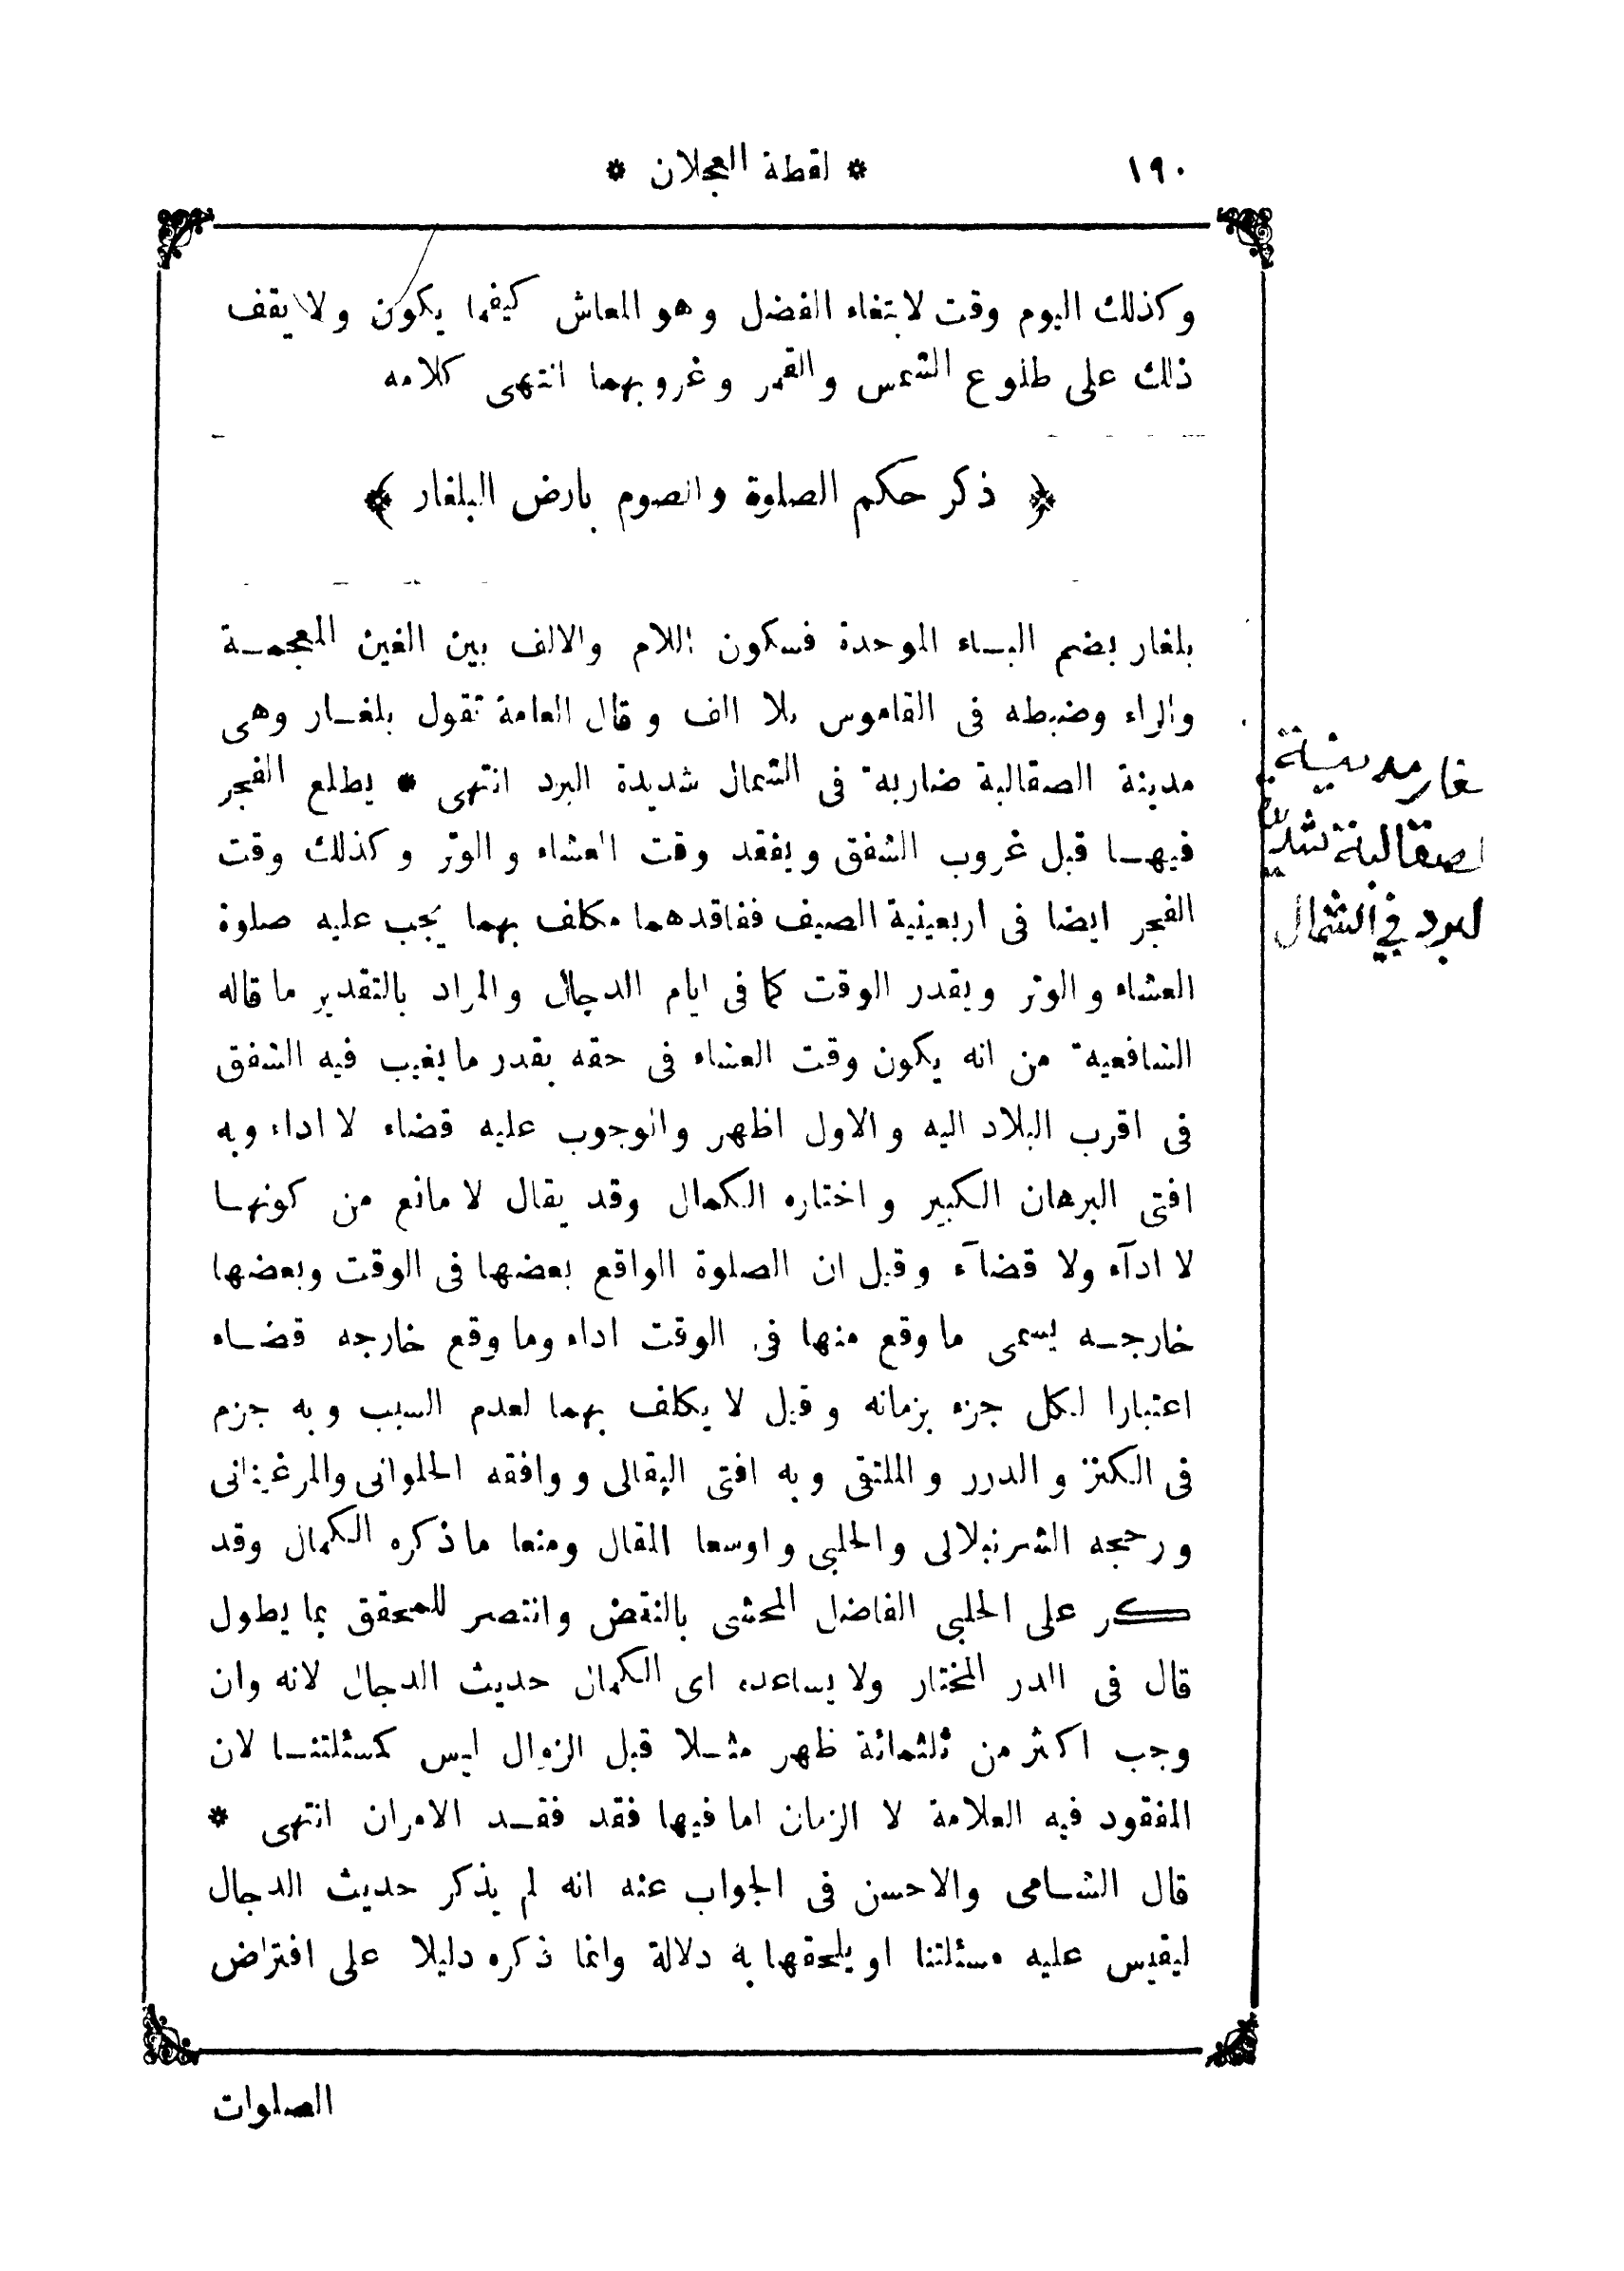 ١٩٠
* لقطة العجلان *
وكذلك اليوم وقت لابتغاء الفضل وهو المعاش كيفما يكون ولا يقف
ذلك على طلوع الشمس والقمر وغروبهما انتهى كلامه
﴿ ذكر حكم الصلوة والصوم بارض البلغار ﴾
بلغار بضم الباء الموحدة فسكون اللام والالف بين الغين المعجمة
والراء وضبطه فى القاموس بلا الف وقال العامة تقول بلغار وهى
مدينة الصقالبة ضاربة فى الشمال شديدة البرد انتهى * يطلع الفجر
فيها قبل غروب الشفق ويفقد وقت العشاء والوتر وكذلك وقت
الفجر ايضا فى اربعينية الصيف ففاقدهما مكلف بهما يجب عليه صلوة
العشاء والوتر ويقدر الوقت كما فى ايام الدجال والمراد بالتقدير ما قاله
الشافعية من انه يكون وقت العشاء فى حقه بقدر ما يغيب فيه الشفق
فى اقرب البلاد اليه والاول اظهر والوجوب عليه قضاء لا اداء وبه
افتى البرهان الكبير واختاره الكمال وقد يقال لا مانع من كونها
لا ادآء ولا قضآء وقيل ان الصلوة الواقع بعضها فى الوقت وبعضها
خارجه يسمى ما وقع منها فى الوقت اداء وما وقع خارجه قضاء
اعتبارا لكل جزء بزمانه وقيل لا يكلف بهما لعدم السبب وبه جزم
فى الكنز والدرر والملتقى وبه افتى البقالى ووافقه الحلوانى والمرغينانى
ورحجه الشرنبلالى والحلبى واوسعا المقال ومنعا ما ذكره الكمال وقد
كر على الحلبى الفاضل المحشى بالنقض وانتصر للمحقق بما يطول
قال فى الدر المختار ولا يساعده اى الكمال حديث الدجال لانه وان
وجب اكثر من ثلثمائة ظهر مثلا قبل الزوال ليس كمسئلتنا لان
المفقود فيه العلامة لا الزمان اما فيها فقد فقد الامران انتهى *
قال الشامى والاحسن فى الجواب عنه انه لم يذكر حديث الدجال
ليقيس عليه مسئلتنا او يلحقها به دلالة وانما ذكره دليلا على افتراض
الصلوات
لغار مدينة
لصقالبة شديد
لبرد في الشمال